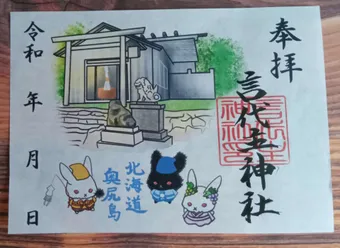 奉拝
言代主神社
北海道
奥尻島
令和 年 月 日